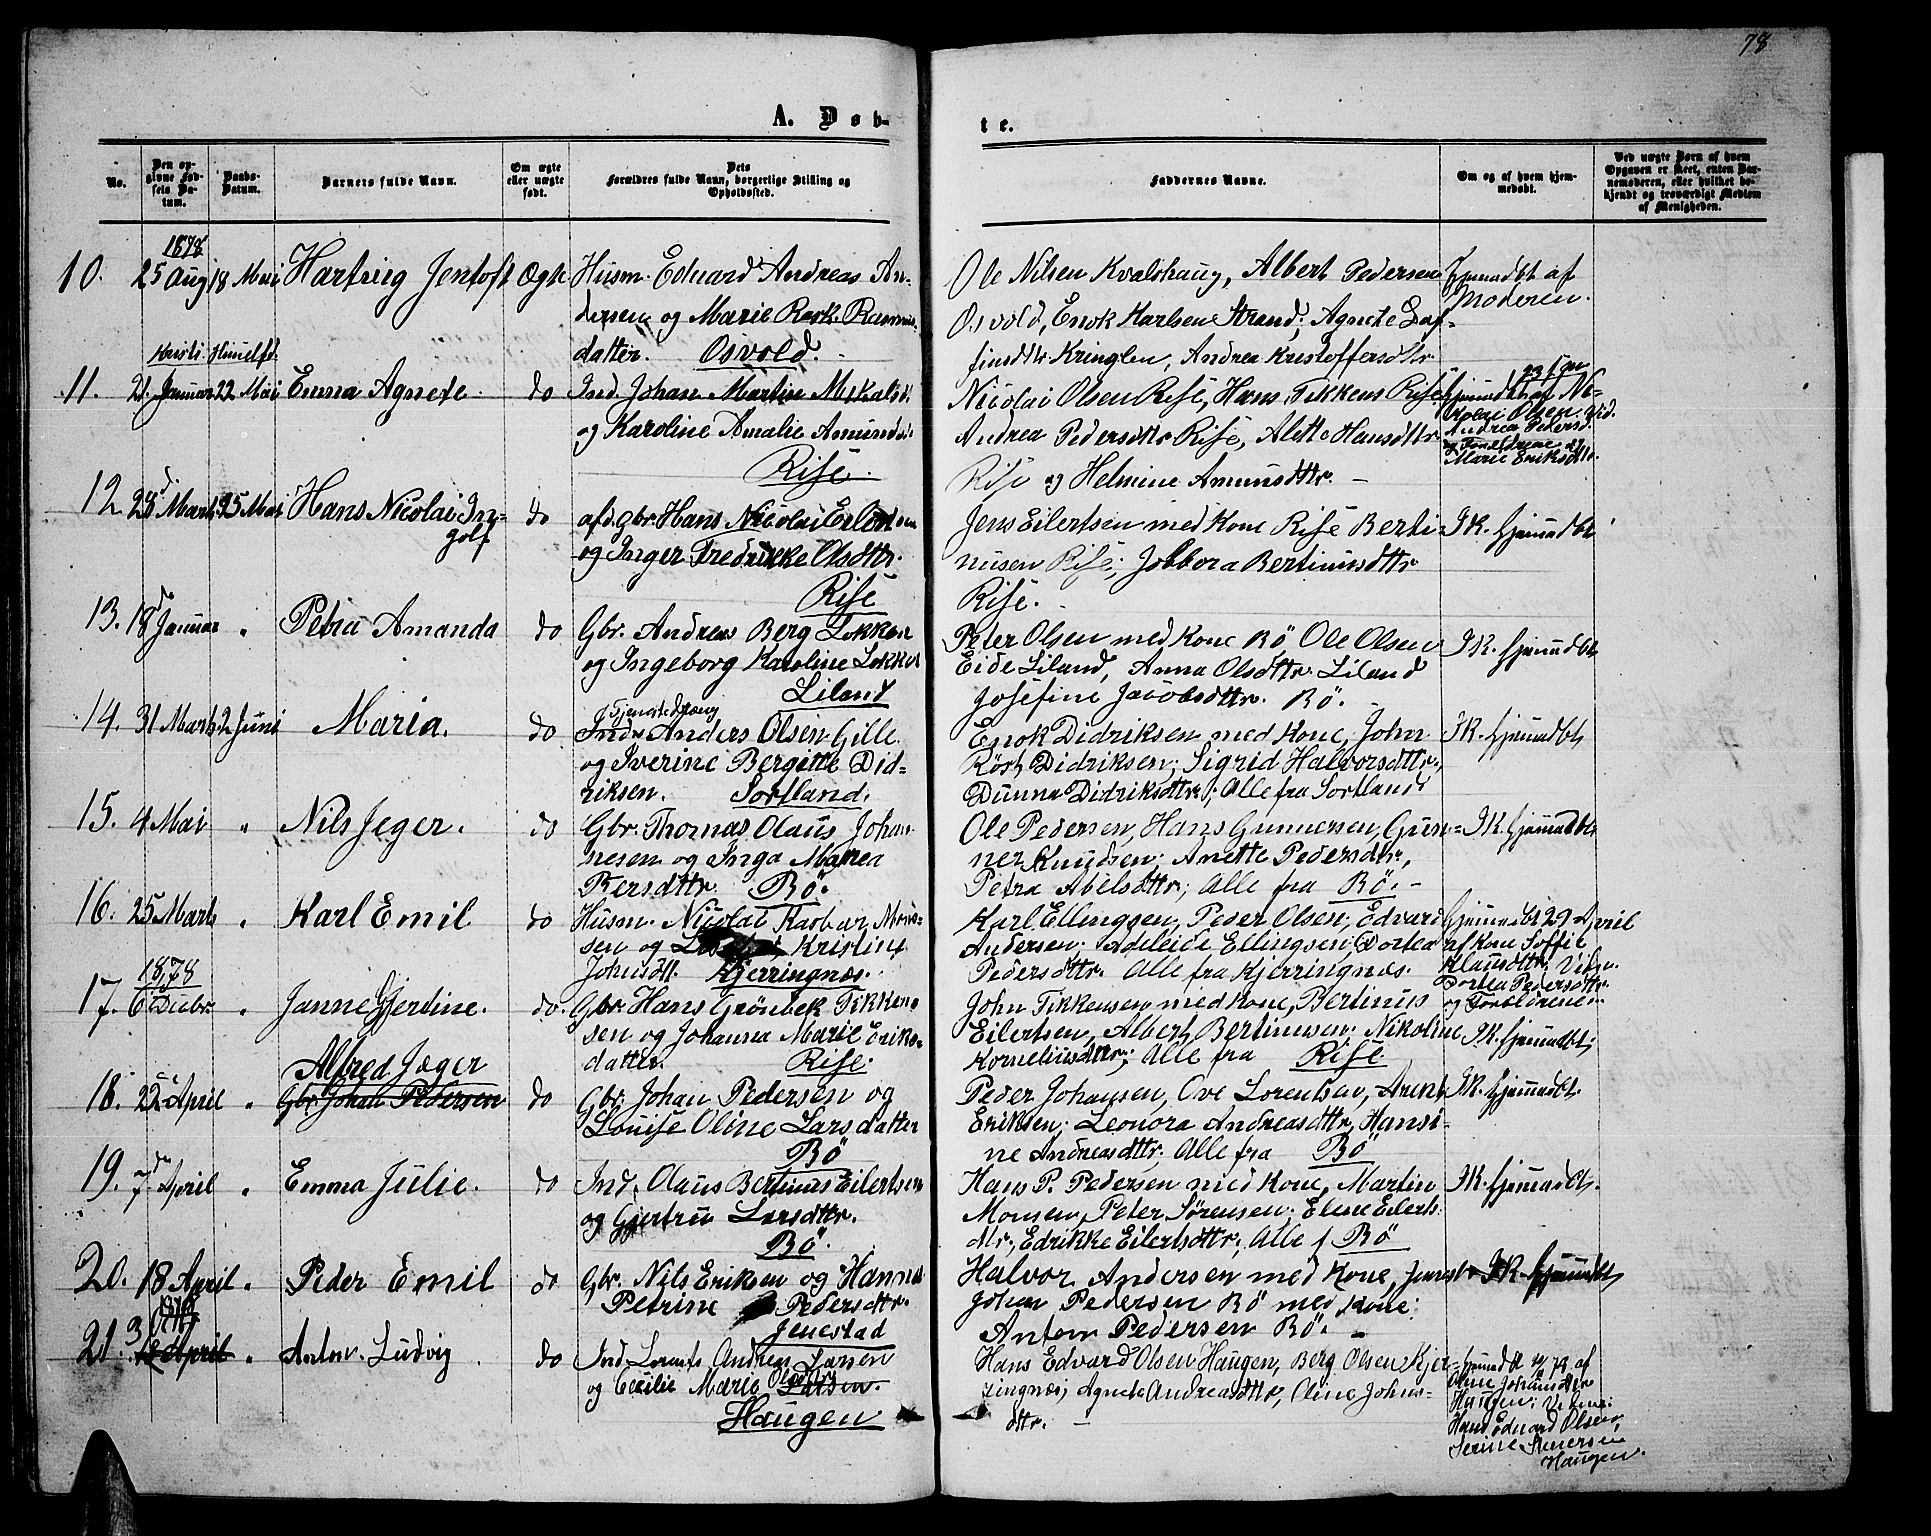 78
A. Døb-
te.
No.
Den op-
givne Fød-
sels Da-
tum.
Daabs-
Datum.
Barnets fulde Navn.
Om ægte
eller uægte
født.
Dets
Forældres fulde Navn, borgerlige Stilling og
Opholdssted.
Faddernes Navne.
Om og af hvem hjem-
medøbt.
Ved uægte Børn af hvem
Opgaven er skeet, enten Bar-
nemoderen, eller hvilket be-
kjendt og troværdigt Medlem
af Menigheden.
1878
10. 25 Aug 18 Mai Hartvig Jentoft Ægte Husm. Eduard Andreas An-
dersen og Marie Rask Rasmus-
datter. Osvold.
Ole Nilsen Kvalshaug, Albert Pedersen
Osvold, Enok Karlsen Strand; Agnete Daf-
finsdttr Kringlen, Andrea Kristoffersdttr
Hjemmedbt af
Moderen.
Kristi Himelfd.
11. 21. Januar 22 Mai Emma Agnete. do Ind. Johan Martin Mikalsd.
og Karoline Amalie Amundsd.
Rise.
Nicolai Olsen Rise, Hans Tikkens Rise
Andrea Pedersdttr Rise, Alette Hansdttr
Rise og Helmine Amunsdttr. -
23 Jan
Hjemmedbt af Ni-
kolai Olsen Vid.
Andrea Pedersd.
og Forældrene og
Marie Eriksdttr.
12. 28 Marts 25 Mai Hans Nicolai In-
golf do afd. Gbr. Hans Nicolai Eilertsen
og Inger Fredrikke Olsdttr.
Rise
Jens Eilertsen med Kone Rise Berti-
nusen Rise; Jobbora Bertinusdttr
Rise. -
I K. hjemmdbt
13. 18de Januar " Petra Amanda do Gbr. Andreas Berg Lokken
og Ingeborg Karoline Lokken
Liland
Peter Olsen med Kone Bö Ole Olsen
Eide Liland, Anna Olsdttr. Liland
Josefine Jacobsdttr. Bö.
I K. hjemmdbt
14. 31 Marts 2 Juni Maria. do. Tjenestedreng
Anders Olsen Gille
og Iverine Bergitte Did-
riksen. Sortland.
Enok Didriksen med Kone, John
Röst Didriksen; Sigrid Halvorsdttr.,
Dunna Didriksdttr; Alle fra Sortland
I K. hjemmdbt
15. 4 Mai " Nils Jeger. do Gbr. Thomas Olaus Johan-
nesen og Inga Marea
Persdttr. Bö.
Ole Pedersen, Hans Gunnersen, Gun-
ner Knudsen; Anette Pedersdtr,
Petra Abelsdttr; Alle fra Bö. -
I K. hjemmdbt
16. 25 Marts " Karl Emil do Husm. Nicolai Kasbar Mons-
sen og Kristine
Johnsdtt. Kjerringnæs.
Karl Ellingsen, Peder Olsen; Edvard
Andersen; Adeleide Ellingsen; Dortea
Pedersdttr. Alle fra Kjerringnæs.
Hjemmdbt 29 April
af Kone Soffie
Klausdttr. Vidn.
Dortea Pedersdttr.
og Forældrene
1878
17. 6 Decbr. " Janne Gjertine. do. Gbr. Hans Grönbek Tikken-
sen og Johanna Marie Eriks-
datter. Rise.
John Tikkensen med Kone, Bertinus
Eilertsen, Albert Bertinusen; Nikoline
Korneliusdttr; Alle fra Rise
I K. hjemmdbt
Alfred Jæger
18. 25 April " Gbr Johan Pedersen do Gbr. Johan Pedersen og
Louise Oline Larsdatter
Bö
Peder Johansen, Ove Lorentsen, Arent
Eriksen; Leonora Andreasdttr, Hansi-
ne Andreasdttr; Alle fra Bö
I K. hjemmdbt.
19. 7de April " Emma Julie. do Ind. Olaus Bertinus Eilertsen
og Gjertru Larsdttr.
Bö.
Hans P. Pedersen med Kone, Martin
Monsen, Peter Sörensen; Eline Eilerts-
dtr., Edrikke Eilertsdttr; Alle f Bö
I K. hjemmdbt.
20. 18 April " Peder Emil do Gbr. Nils Eriksen og Hanna
Petrine Pedersdttr.
Jenestad
Halvor Andersen med Kone, Jenest.
Johan Pedersen Bö med Kone;
Anton Pedersen Bö. -
I K. hjemmdbt
21. 3 April " Anton Ludvig do Ind. Lorents Andreas Larsen
og Cecilie Marie Olsdttr Larsen.
Haugen
Hans Edvard Olsen Haugen, Berg Olsen Kjer-
ringnæs; Agnete Andreasdttr, Oline Johns-
dttr. -
Hjemmdbt af
Oline Johansdtter
Haugen; Vidner:
Hans Edvard Olsen,
Serine Iversen
Haugen.